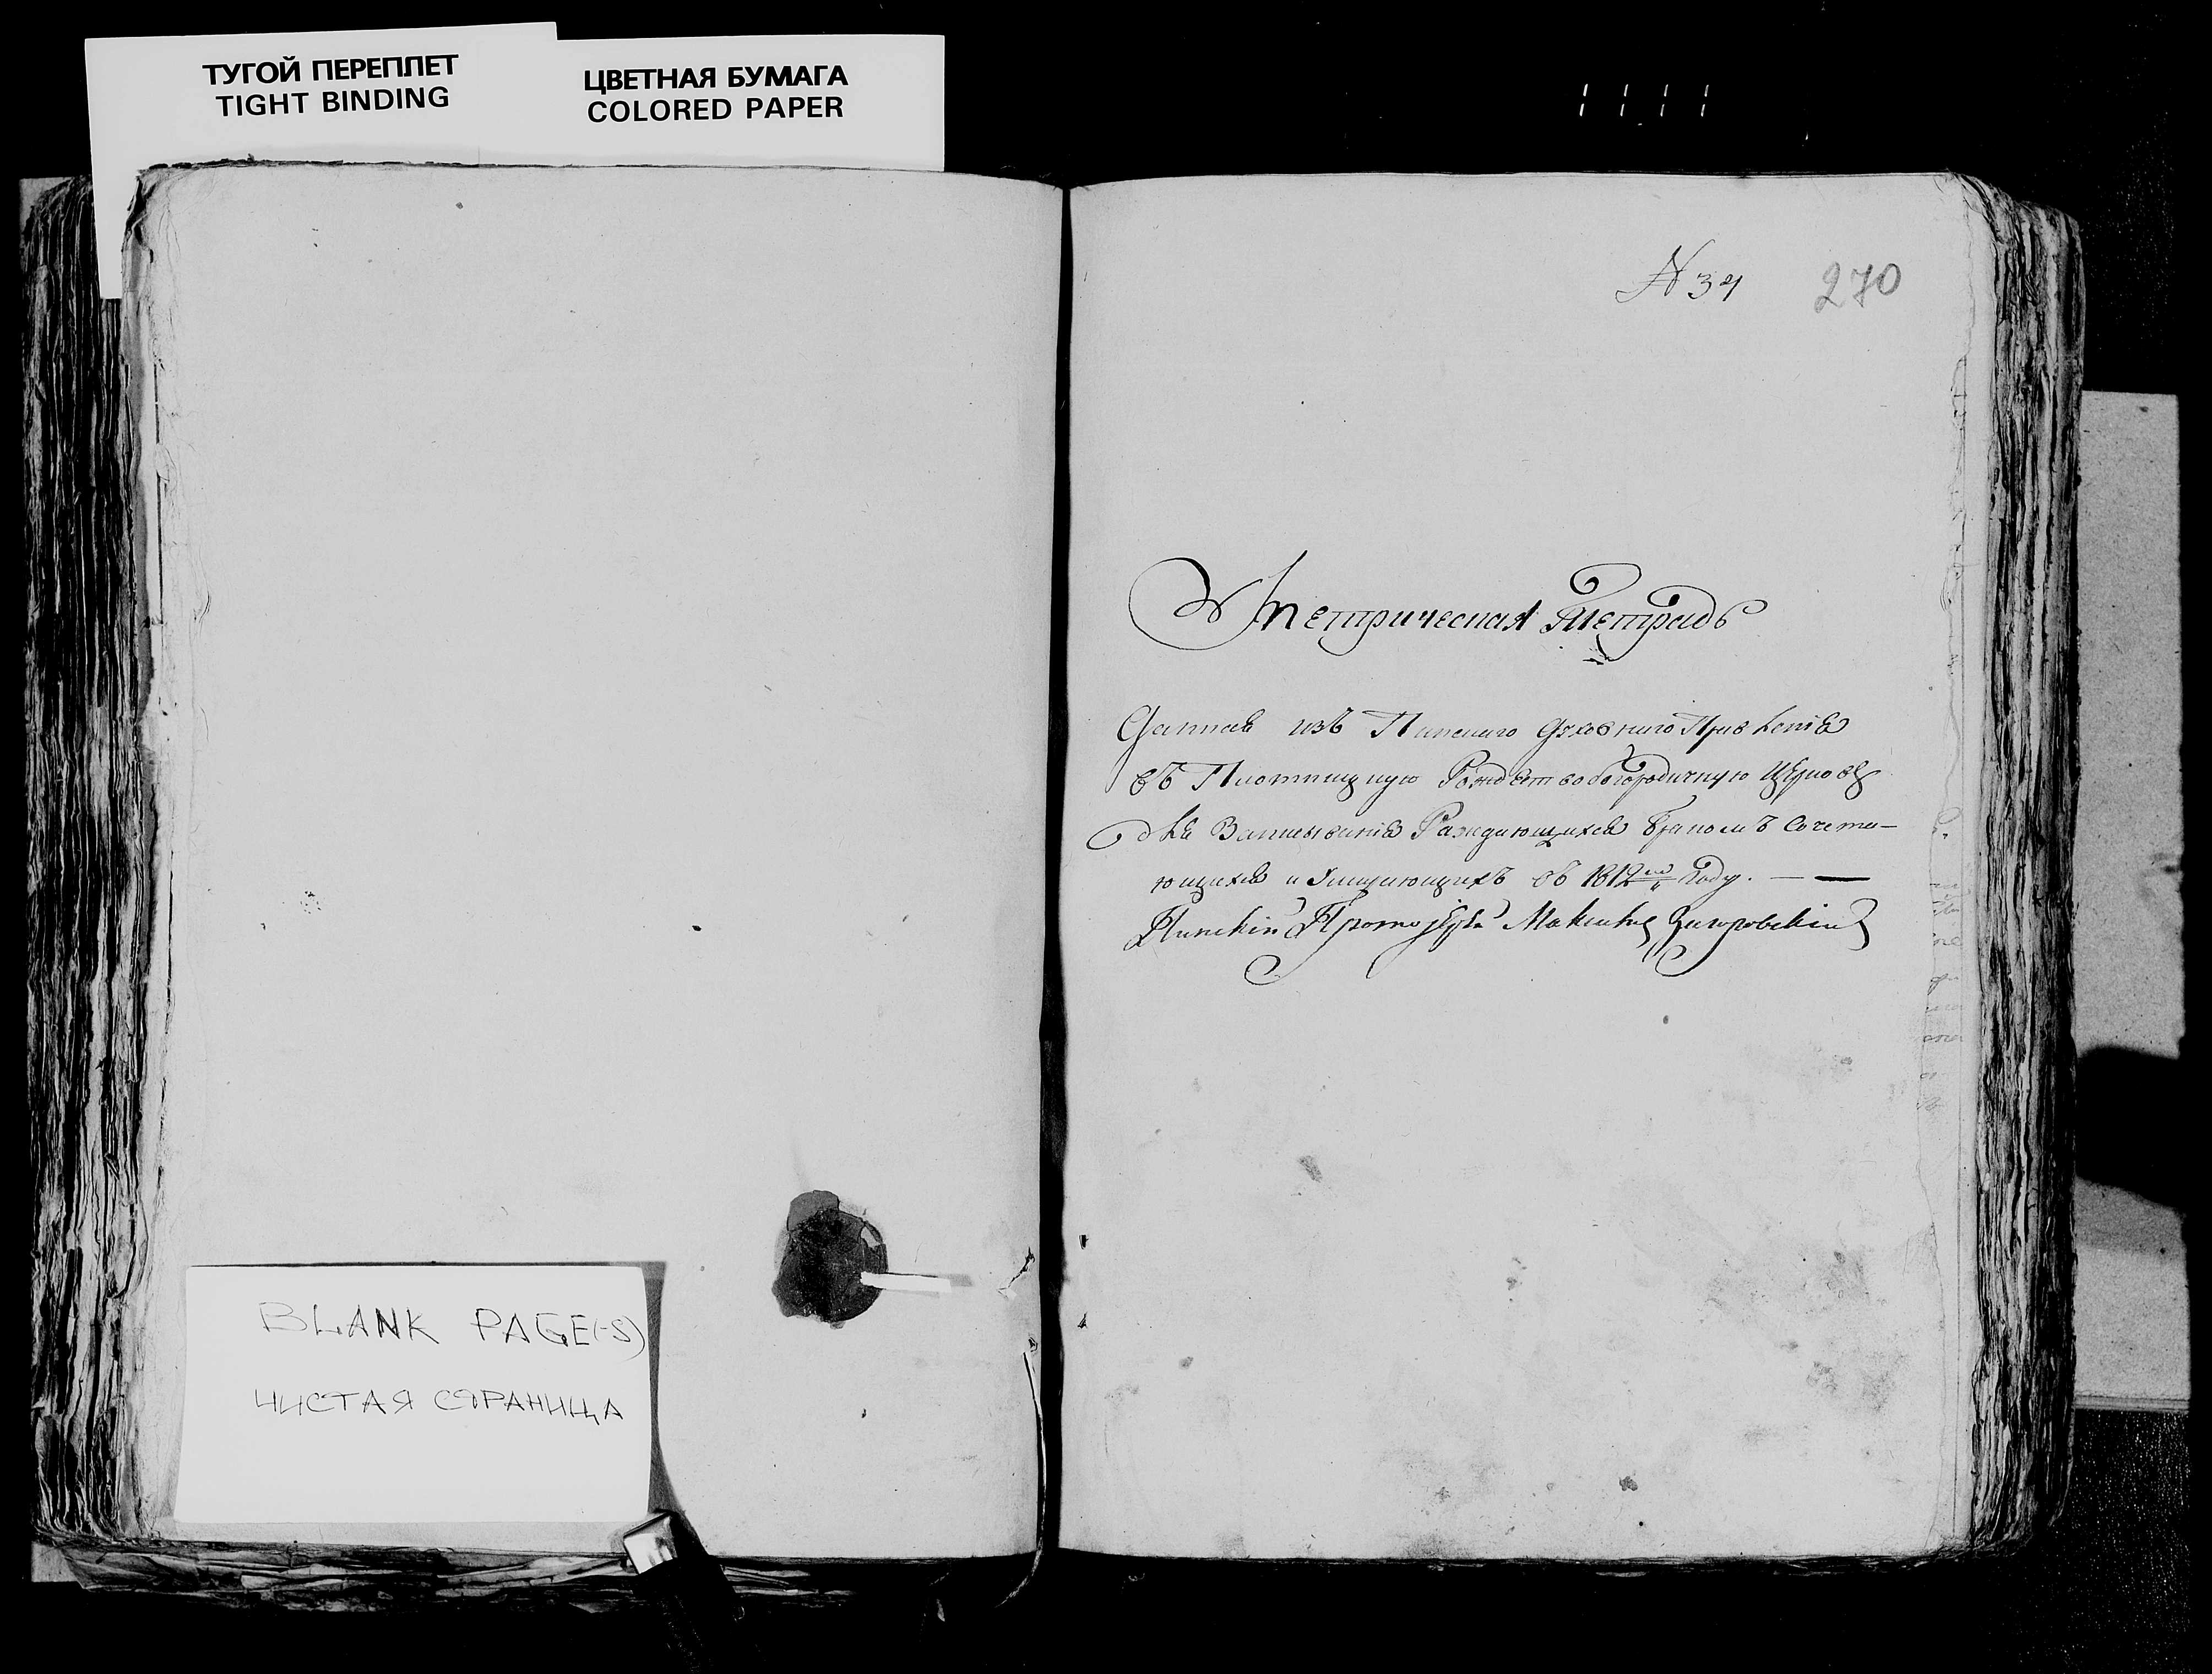 ТУГОЙ ПЕРЕПЛЕТ
TIGHT BINDING
ЦВЕТНАЯ БУМАГА
COLORED PAPER
N 34
270
Метрическая Тетрадь
Данная изъ Пинскаго Духовнаго Правленія
въ Плотницкую Рождествобогородичную Церковь
для Записыванія Раждающихся бракомъ Сочета-
ющихся и Умирающихъ въ 1812мъ Году. —
Пинскій Протоіерей Загоровскій
BLANK PAGE(-S)
ЧИСТАЯ СТРАНИЦА